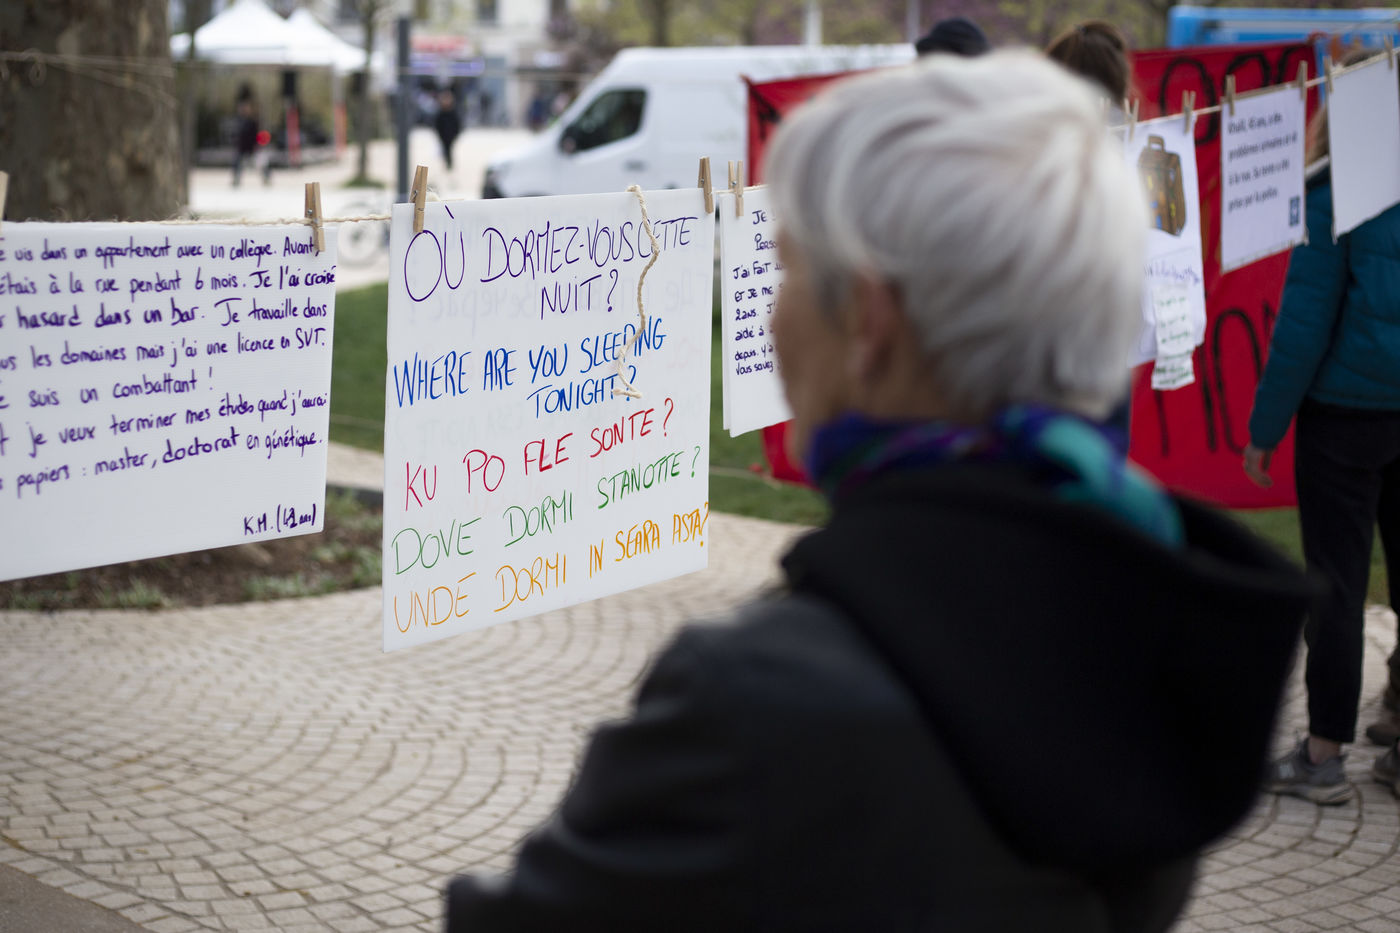 vis dans un appartement avec un collègue. Avant,
étais à la rue pendant 6 mois. Je l'ai croisé
hasard dans un bar. Je travaille dans
les domaines mais j'ai une licence en SVT.
suis un combattant !
je veux terminer mes études quand j'aurai
papiers : master, doctorat en génétique.
K.M. (42 ans)
OÙ DORMEZ-VOUS CETTE
NUIT ?
WHERE ARE YOU SLEEPING
TONIGHT ?
KU PO FLE SONTE ?
DOVE DORMI STANOTTE ?
UNDE DORMI IN SEARA ASTA?
JE
J'ai fait
ET JE ME
2ans. J'
aidé à
depuis. y'a
vous savez
45 ans, a des
problèmes urinaires et vit
à la rue. Sa tente a été
prise par la police.